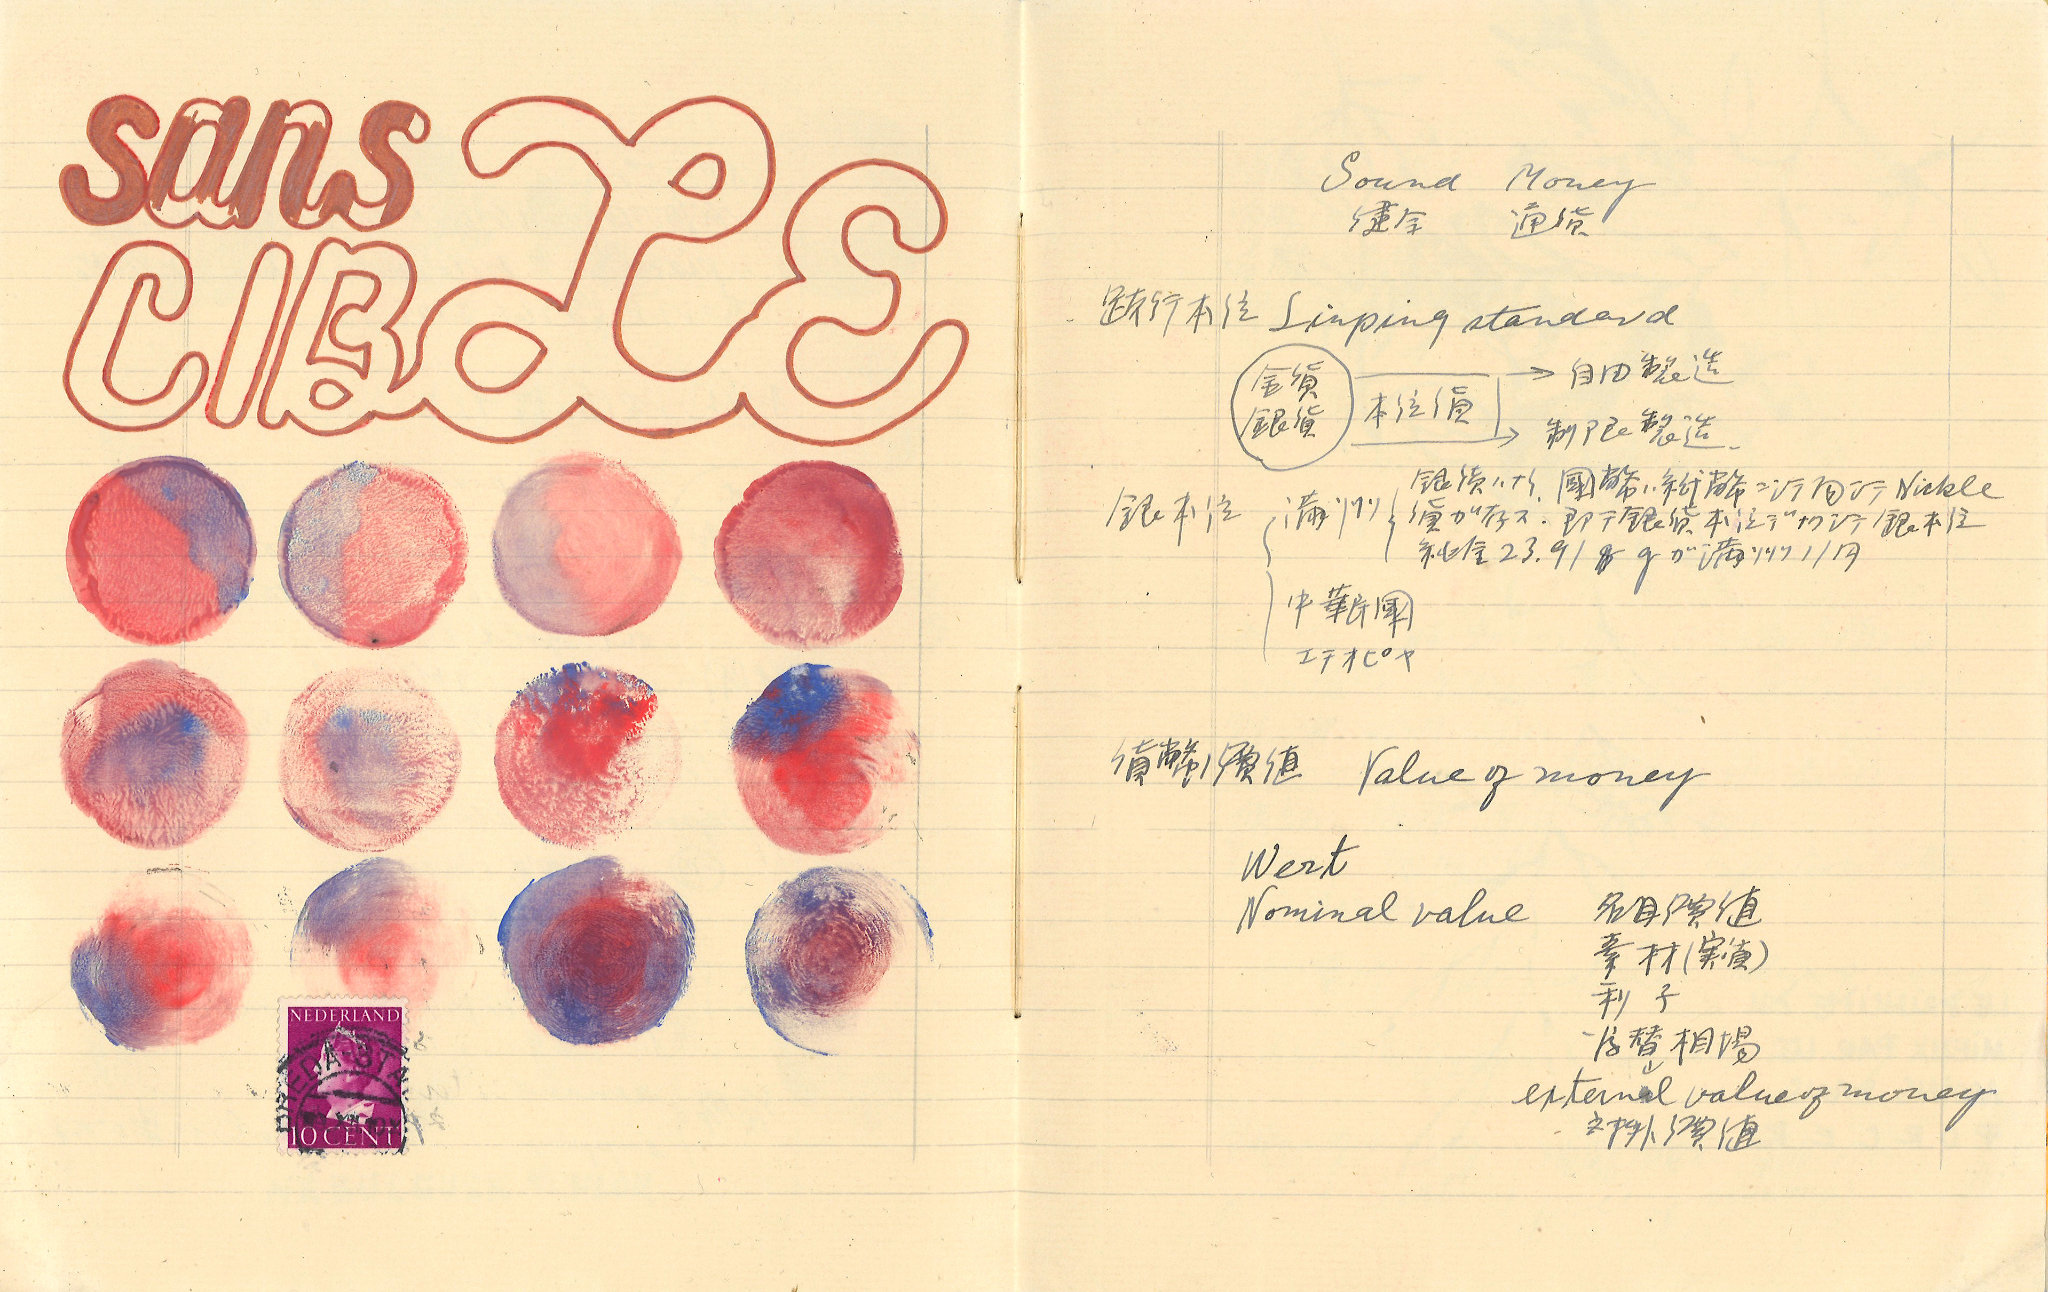 sans
CIBLE
NEDERLAND
BREDA-STA
10 CENT
Sound Money
健全 通貨
跛行本位 Limping standard
金貨 本位貨 → 自由製造
銀貨 → 制限製造
銀本位 満州 銀貨ハナク、國幣ハ紙幣ニシテ Nickle
貨ガ存ス. 即チ銀貨本位デナクシテ銀本位
純金 23.91 g ガ満州ノ1円
中華民國
エテオピヤ
貨幣ノ價値 Value of money
Wert
Nominal value 名目價値
素材(実價)
利子
為替相場
external value of money
対外價値